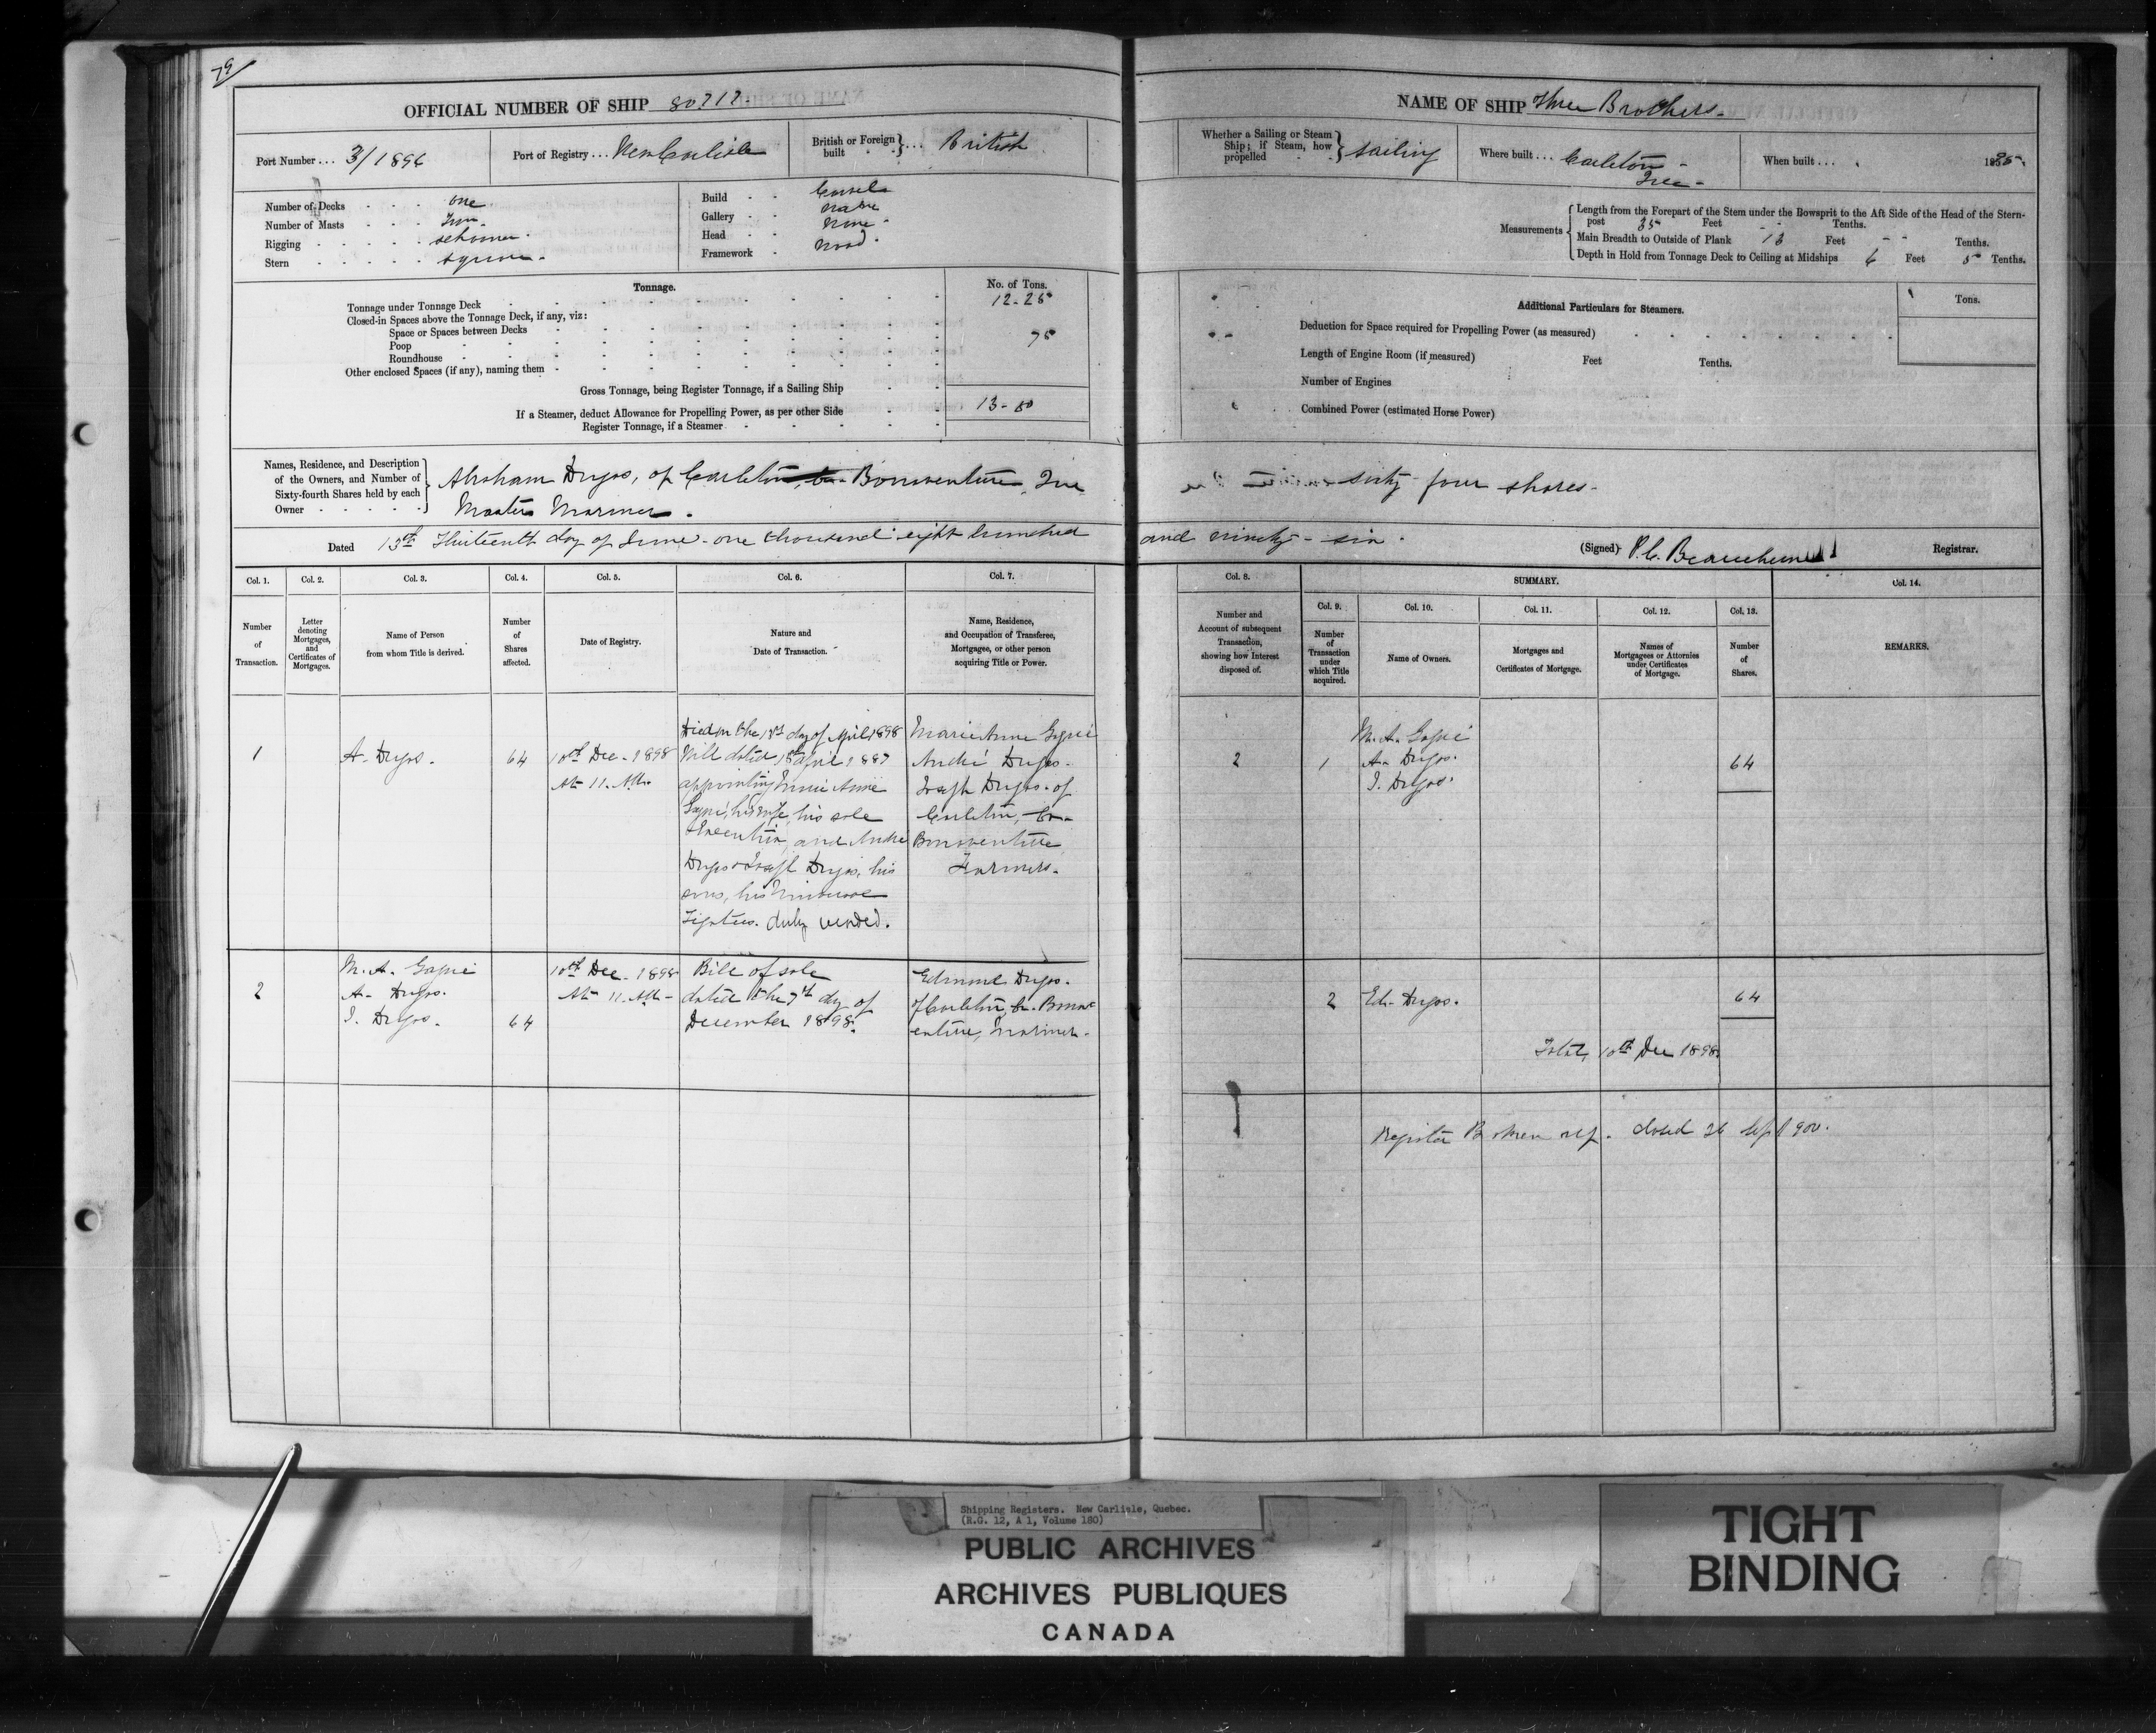 79
OFFICIAL NUMBER OF SHIP 80717.
Port Number ... 3/1896
Port of Registry ... New Carlisle
British or Foreign built } ... British
Number of Decks one
Number of Masts Two
Rigging schooner.
Stern square.
Build Carvel
Gallery None
Head None
Framework Wood.
Tonnage.
No. of Tons.
Tonnage under Tonnage Deck 12.25
Closed-in Spaces above the Tonnage Deck, if any, viz:
Space or Spaces between Decks 75
Poop
Roundhouse
Other enclosed Spaces (if any), naming them
Gross Tonnage, being Register Tonnage, if a Sailing Ship
If a Steamer, deduct Allowance for Propelling Power, as per other Side 13-00
Register Tonnage, if a Steamer
Names, Residence, and Description of the Owners, and Number of Sixty-fourth Shares held by each Owner
Abraham Dugas, of Carleton, Co. Bonaventure, Que
Master Mariner.
Dated 13th Thirteenth day of June one thousand eight hundred
Col. 1. Col. 2. Col. 3. Col. 4. Col. 5. Col. 6. Col. 7.
Number of Transaction.
Letter denoting Mortgages, and Certificates of Mortgages.
Name of Person from whom Title is derived.
Number of Shares affected.
Date of Registry.
Nature and Date of Transaction.
Name, Residence, and Occupation of Transferee, Mortgagee, or other person acquiring Title or Power.
1
A. Dugas.
64
10th Dec. 1898
At 11. AM.
Died on the day of April 1898
Will dated April 1887
appointing Marie Anne
his wife, his sole
Executrix, and André
Dugas & Dugas, his
sons, his
Legatees. duly
Marie Anne
André Dugas.
Dugas. of
Carleton, Co.
Bonaventure,
Farmers.
2
M. A.
A. Dugas.
J. Dugas.
64
10th Dec. 1898
At 11. AM.
Bill of sale
dated the 7th day of
December 1898.
Edmond Dugas.
of Carleton, Co. Bonav-
enture, Mariner.
NAME OF SHIP Three Brothers.
Whether a Sailing or Steam Ship; if Steam, how propelled } Sailing
Where built ... Carleton
Que
When built ... 1885.
Measurements
Length from the Forepart of the Stem under the Bowsprit to the Aft Side of the Head of the Stern-
post 35 Feet - Tenths.
Main Breadth to Outside of Plank 13 Feet - Tenths.
Depth in Hold from Tonnage Deck to Ceiling at Midships 6 Feet 5 Tenths.
Additional Particulars for Steamers.
Tons.
Deduction for Space required for Propelling Power (as measured)
Length of Engine Room (if measured) Feet Tenths.
Number of Engines
Combined Power (estimated Horse Power)
sixty four shares.
and ninety - six.
(Signed) P. C. Beauchesne Registrar.
Col. 8. SUMMARY. Col. 14.
Col. 9. Col. 10. Col. 11. Col. 12. Col. 13.
Number and Account of subsequent Transaction, showing how Interest disposed of.
Number of Transaction under which Title acquired.
Name of Owners.
Mortgages and Certificates of Mortgage.
Names of Mortgagees or Attornies under Certificates of Mortgage.
Number of Shares.
REMARKS.
2
1
M. A.
A. Dugas.
J. Dugas.
64
2
Ed. Dugas.
64
Total, 10th Dec 1898
Register Broken up. Closed 26 Sept 1900.
Shipping Registers. New Carlisle, Quebec.
(R.G. 12, A 1, Volume 180)
PUBLIC ARCHIVES
ARCHIVES PUBLIQUES
CANADA
TIGHT
BINDING